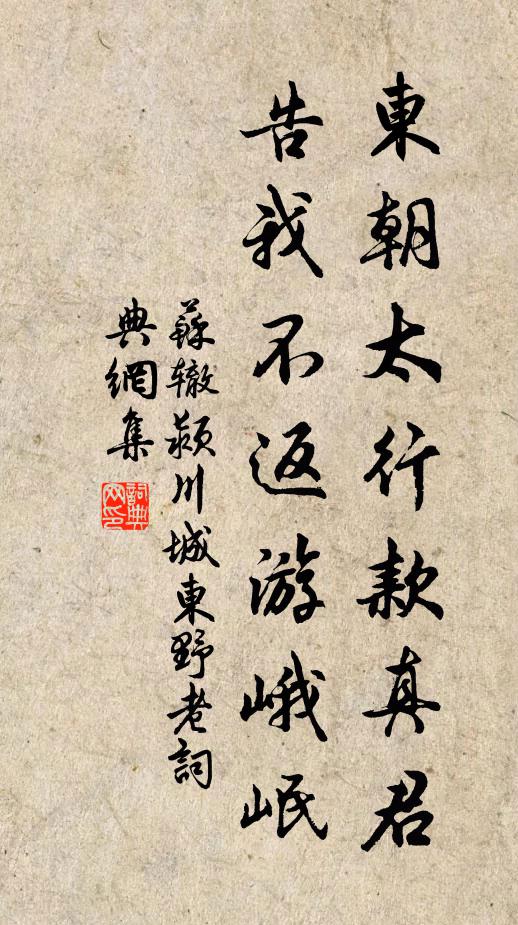 東朝太行款真君
告我不返游峨岷
蘇轍潁川城東野老詞
典網集
詞典網印